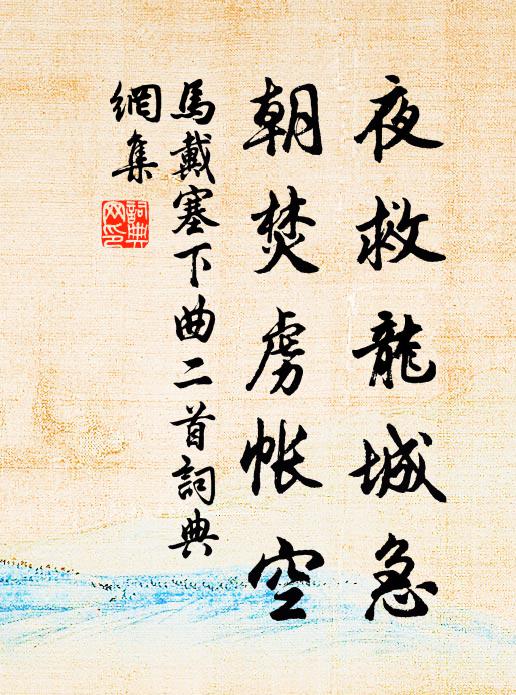 夜救龍城急
朝焚虜帳空
馬戴塞下曲二首詞典
網集
詞典
网印